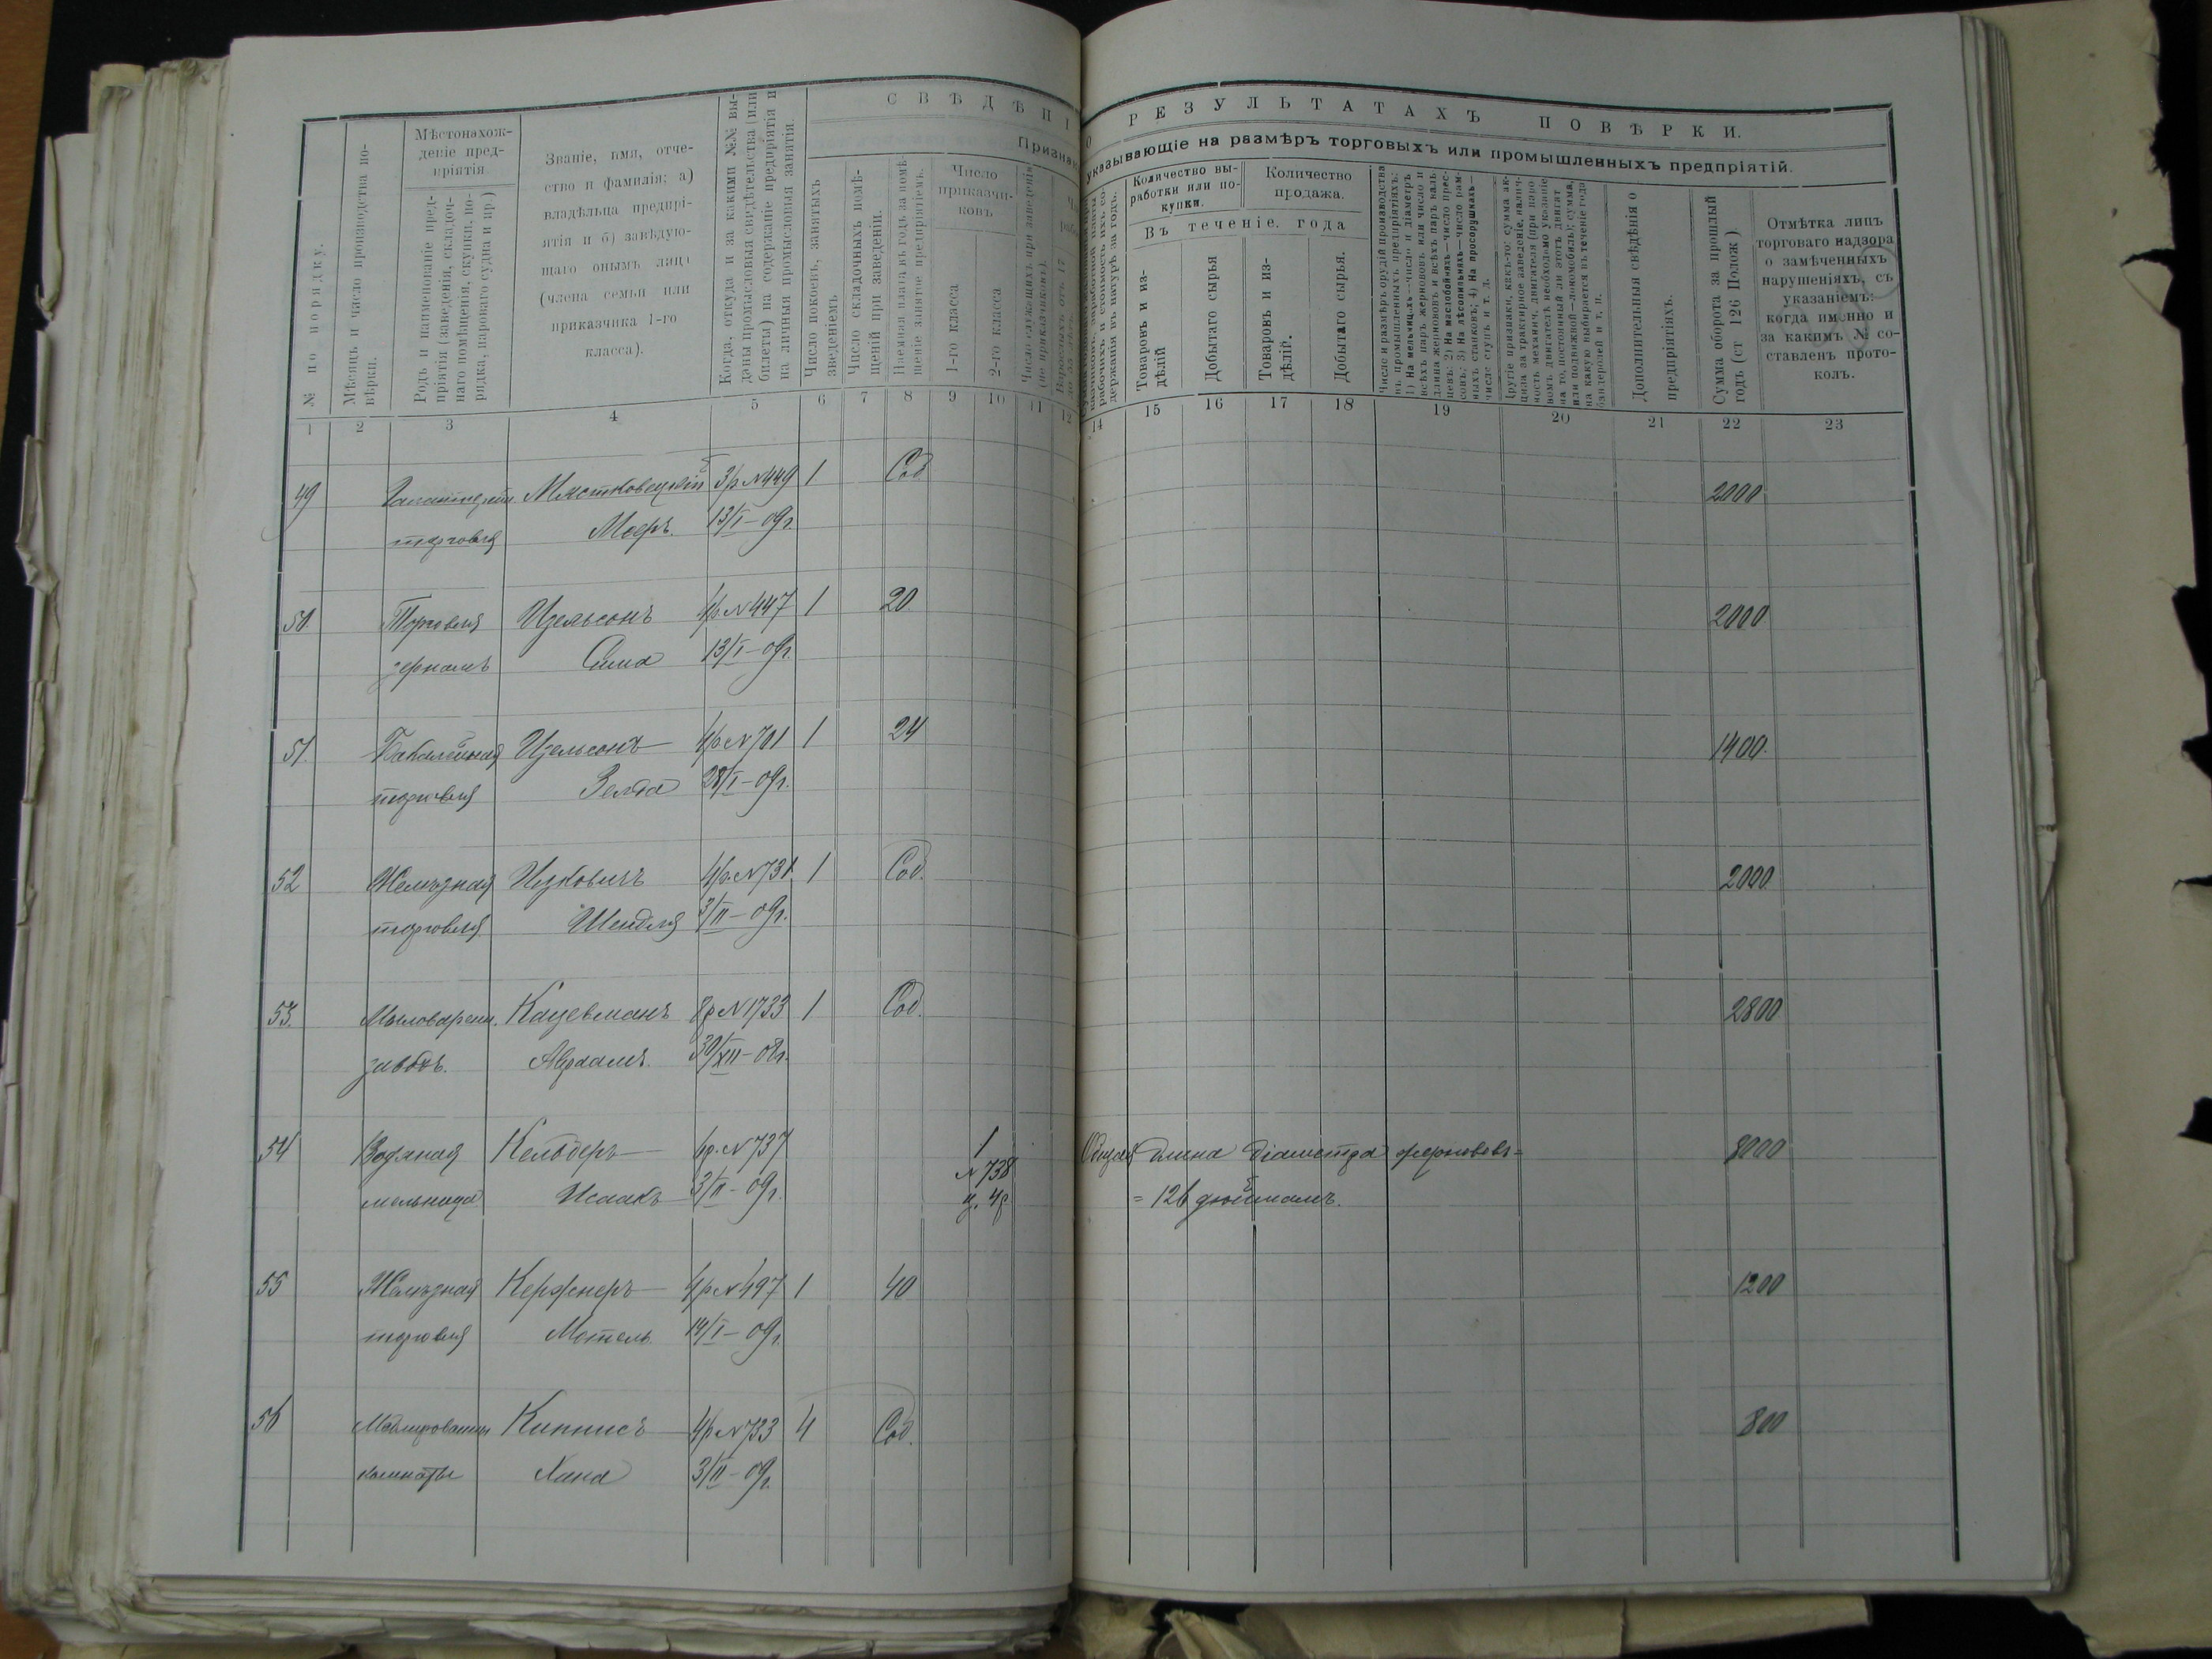 СВѢДѢНІ
О РЕЗУЛЬТАТАХЪ ПОВѢРКИ.
Признак
указывающіе на размѣръ торговыхъ или промышленныхъ предпріятій.
№ по порядку.
Мѣсяцъ и число производства по-
вѣрки.
Мѣстонахож-
деніе пред-
пріятія
Родъ и наименованіе пред-
пріятія (заведенія, складоч-
наго помѣщенія, скупки, по-
ряда, парового судна и пр.)
Званіе, имя, отче-
ство и фамилія: а)
владѣльца предпрі-
ятія и б) завѣдую-
щаго онымъ лица
(члена семьи или
приказчика 1-го
класса).
Когда, откуда и за какими №№ вы-
даны промысловыя свидѣтельства (или
билеты) на содержаніе предпріятія и
на личныя промысловыя занятія.
Число покоевъ, занятыхъ
зведеніемъ
Число складочныхъ помѣ-
щеній при заведеніи.
Наемная плата въ годъ за помѣ-
щеніе занятое предпріятіемъ.
Число
приказчи-
ковъ
1-го класса
2-го класса
Число служащихъ при заведеніи
(не приказчиковъ).
Количество вы-
работки или по-
купки.
Количество
продажа.
Въ теченіе. года
Товаровъ и из-
дѣлій
Добытаго сырья
Товаровъ и из-
дѣлій.
Добытаго сырья.
Число и размѣръ орудій производства
въ промышленныхъ предпріятіяхъ:
1) На мельницахъ—число и діаметръ
всѣхъ паръ жернововъ или число и
длина жернововъ и всѣхъ паръ валь
цевъ; 2) На маслобойняхъ—число прес-
совъ; 3) На лѣсопильняхъ—число рам-
ныхъ станковъ; 4) На просорушкахъ—
число ступъ и т. д.
Другіе признаки, какъ-то: сумма ак-
циза за трактирное заведеніе, налич-
ность механич. двигателя (при паро
вомъ двигателѣ необходимо указаніе
на то, постоянный ли этотъ двигат
или подвижной—локомобиль); сумма,
на какую выбирается въ теченіе года
бандеролей и т. п.
Дополнительныя свѣдѣнія о
предпріятіяхъ.
Сумма оборота за прошлый
годъ (ст 126 Полож )
Отмѣтка лицъ
торговаго надзора
о замѣченныхъ
нарушеніяхъ, съ
указаніемъ:
когда именно и
за какимъ № со-
ставленъ прото-
колъ.
1 2 3 4 5 6 7 8 9 10 11 12 14 15 16 17 18 19 20 21 22 23
49 Галантерейн. Мястковецкій 3р №449 1 Соб 2000
торговля Мееръ. 13/I-09г.
50 Торговля Изельсонъ 4р №447 1 20 2000
зерномъ Сима 13/I-09г.
51. Бакалейная Изельсонъ 4р №701 1 24 1400.
торговля Зелда 28/I-09г.
52 Желѣзная Ицковичъ 4р. №731 1 Соб. 2000
торговля Шендля 3/II-09г.
53. Мыловарен. Кацевманъ 8р №1733 1 Соб. 2800
заводъ. Авраамъ. 30/XII-08г.
54 Водяная Кельдеръ 6р. №737 1 Общая длина діаметра жерновъ= 8000
№738
мельница Исаакъ 3/II-09г. ц. 4р. =126 дюймамъ.
55 Желѣзная Кержнеръ 4р №497 1 40 1200
торговля Мотель. 14/I-09г.
56 Меблированныя Кипнисъ 4р №733 4 Соб. 800
комнаты Хана 3/II-09г.